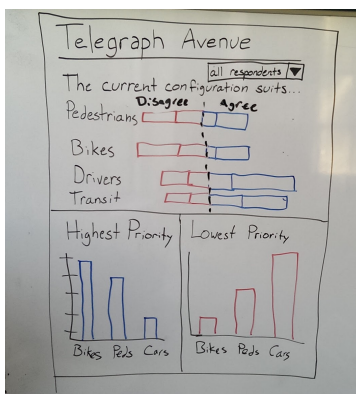 Telegraph Avenue
all respondents
The current configuration suits...
Disagree Agree
Pedestrians
Bikes
Drivers
Transit
Highest Priority
Bikes Peds Cars
Lowest Priority
Bikes Peds Cars